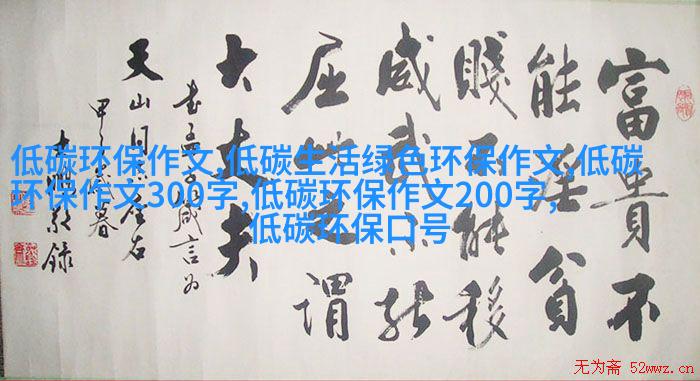 富貴不
能淫貧
賤不能移
威武不能
屈此之謂
大丈夫
天山同志座右
低碳环保作文,低碳生活绿色环保作文,低碳
环保作文300字,低碳环保作文200字,
低碳环保口号
无为斋 52wwz.cn